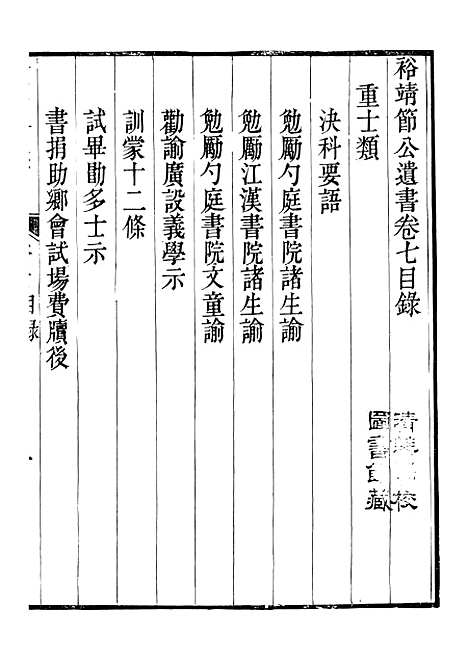 裕靖節公遺書卷七目錄
重士類
決科要語
勉勵勺庭書院諸生諭
勉勵江漢書院諸生諭
勉勵勺庭書院文童諭
勸諭廣設義學示
訓蒙十二條
試畢勖多士示
書捐助鄉會試場費牘後
目錄
清華學校
圖書館藏